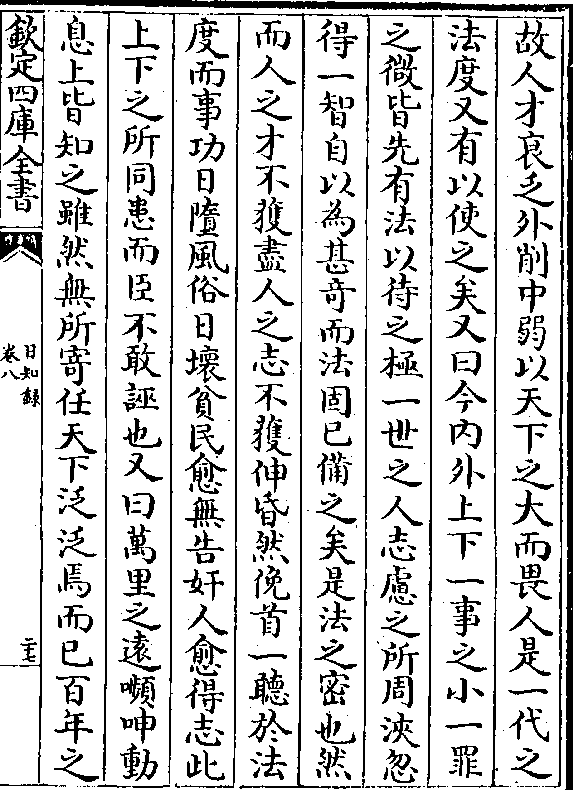 故人才衰乏外削中弱以天下之大而畏人是一代之
法度又有以使之矣又曰今内外上下一事之小一罪
之微皆先有法以待之極一世之人志慮之所周浹忽
得一智自以為甚竒而法固已備之矣是法之密也然
而人之才不獲盡人之志不獲伸昏然俛首一聽於法
度而事功日隳風俗日壊貧民愈無告奸人愈得志此
上下之所同患而臣不敢誣也又曰萬里之遠嚬呻動
息上皆知之雖然無所寄任天下泛泛焉而已百年之
欽定四庫全書
日知録
卷八
二十七